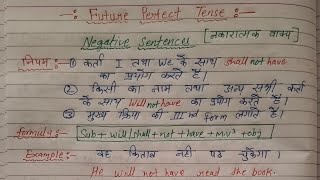 Future Perfect Tense
Negative Sentences [नकारात्मक वाक्य]
नियम:- ① कर्ता I तथा We के साथ shall not have
का प्रयोग करते हैं।
② किसी का नाम तथा अन्य सभी कर्ता
के साथ will not have का प्रयोग करते हैं।
③ मुख्य क्रिया की III rd form लगाते हैं।
formula:- Sub + will/shall + not + have + Mv³ + obj
Example:- वह किताब नही पढ़ चुकेगा।
He will not have read the book.